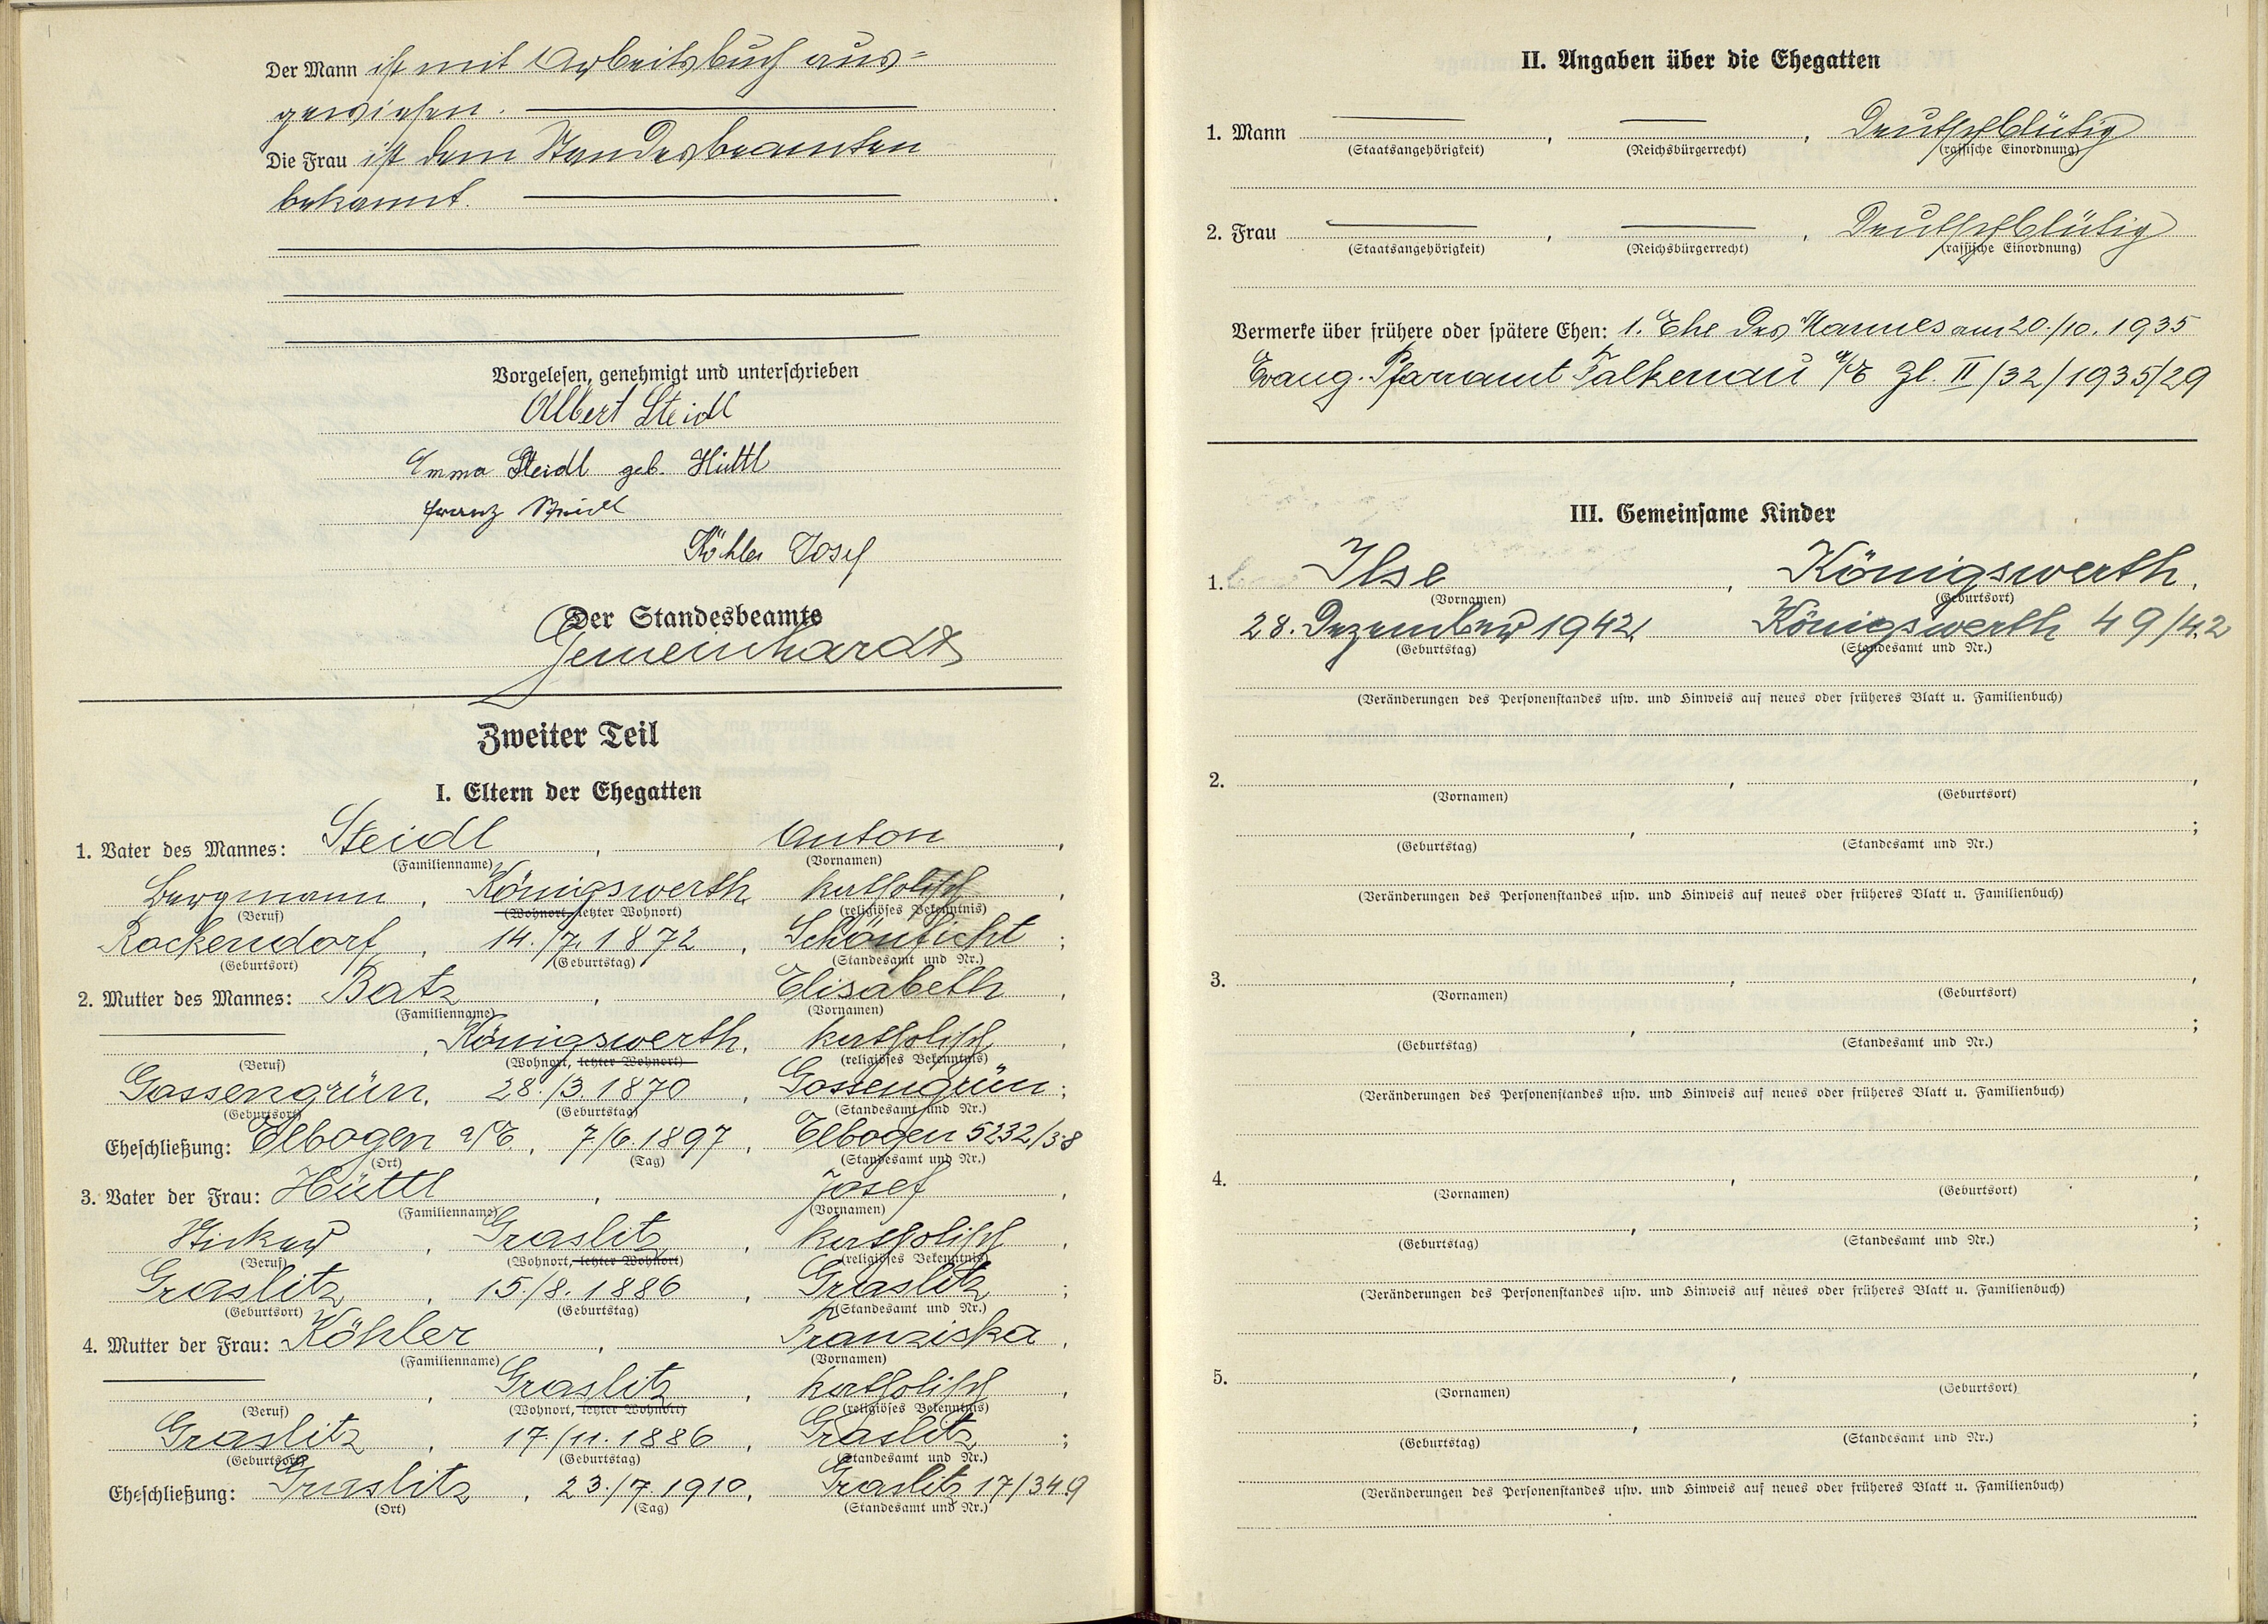 Der Mann ist mit Arbeitsbuch aus=
gewiesen.
Die Frau ist dem Standesbeamten
bekannt.
Vorgelesen, genehmigt und unterschrieben
Albert Steidl
Emma Steidl geb. Hüttl
Franz Steidl
Köhler Josef
Der Standesbeamte
Gemeinhardt
Zweiter Teil
I. Eltern der Ehegatten
1. Vater des Mannes: Steidl, Anton,
(Familienname) (Vornamen)
Bergmann, Königswerth, katholisch,
(Beruf) (Wohnort, letzter Wohnort) (religiöses Bekenntnis)
Rockendorf, 14./7.1872, Schönficht;
(Geburtsort) (Geburtstag) (Standesamt und Nr.)
2. Mutter des Mannes: Batz, Elisabeth,
(Familienname) (Vornamen)
, Königswerth, katholisch,
(Beruf) (Wohnort, letzter Wohnort) (religiöses Bekenntnis)
Gossengrün, 28./3.1870, Gossengrün;
(Geburtsort) (Geburtstag) (Standesamt und Nr.)
Eheschließung: Elbogen a/E., 7./6.1897, Elbogen 5232/38
(Ort) (Tag) (Standesamt und Nr.)
3. Vater der Frau: Hüttl, Josef,
(Familienname) (Vornamen)
Sticker, Graslitz, katholisch,
(Beruf) (Wohnort, letzter Wohnort) (religiöses Bekenntnis)
Graslitz, 15./8.1886, Graslitz;
(Geburtsort) (Geburtstag) (Standesamt und Nr.)
4. Mutter der Frau: Köhler, Franziska,
(Familienname) (Vornamen)
, Graslitz, katholisch,
(Beruf) (Wohnort, letzter Wohnort) (religiöses Bekenntnis)
Graslitz, 17./11.1886, Graslitz;
(Geburtsort) (Geburtstag) (Standesamt und Nr.)
Eheschließung: Graslitz, 23./7.1910, Graslitz 17/349
(Ort) (Tag) (Standesamt und Nr.)
II. Angaben über die Ehegatten
1. Mann , , Deutschblütig
(Staatsangehörigkeit) (Reichsbürgerrecht) (rassische Einordnung)
2. Frau , , Deutschblütig
(Staatsangehörigkeit) (Reichsbürgerrecht) (rassische Einordnung)
Vermerke über frühere oder spätere Ehen: 1. Ehe des Mannes am 20./10.1935
Evang. Pfarramt Falkenau a/E Zl. II/32/1935/29
III. Gemeinsame Kinder
1. Ilse, Königswerth,
(Vornamen) (Geburtsort)
28. Dezember 1942, Königswerth 49/42
(Geburtstag) (Standesamt und Nr.)
(Veränderungen des Personenstandes usw. und Hinweis auf neues oder früheres Blatt u. Familienbuch)
2. , ,
(Vornamen) (Geburtsort)
, ;
(Geburtstag) (Standesamt und Nr.)
(Veränderungen des Personenstandes usw. und Hinweis auf neues oder früheres Blatt u. Familienbuch)
3. , ,
(Vornamen) (Geburtsort)
, ;
(Geburtstag) (Standesamt und Nr.)
(Veränderungen des Personenstandes usw. und Hinweis auf neues oder früheres Blatt u. Familienbuch)
4. , ,
(Vornamen) (Geburtsort)
, ;
(Geburtstag) (Standesamt und Nr.)
(Veränderungen des Personenstandes usw. und Hinweis auf neues oder früheres Blatt u. Familienbuch)
5. , ,
(Vornamen) (Geburtsort)
, ;
(Geburtstag) (Standesamt und Nr.)
(Veränderungen des Personenstandes usw. und Hinweis auf neues oder früheres Blatt u. Familienbuch)